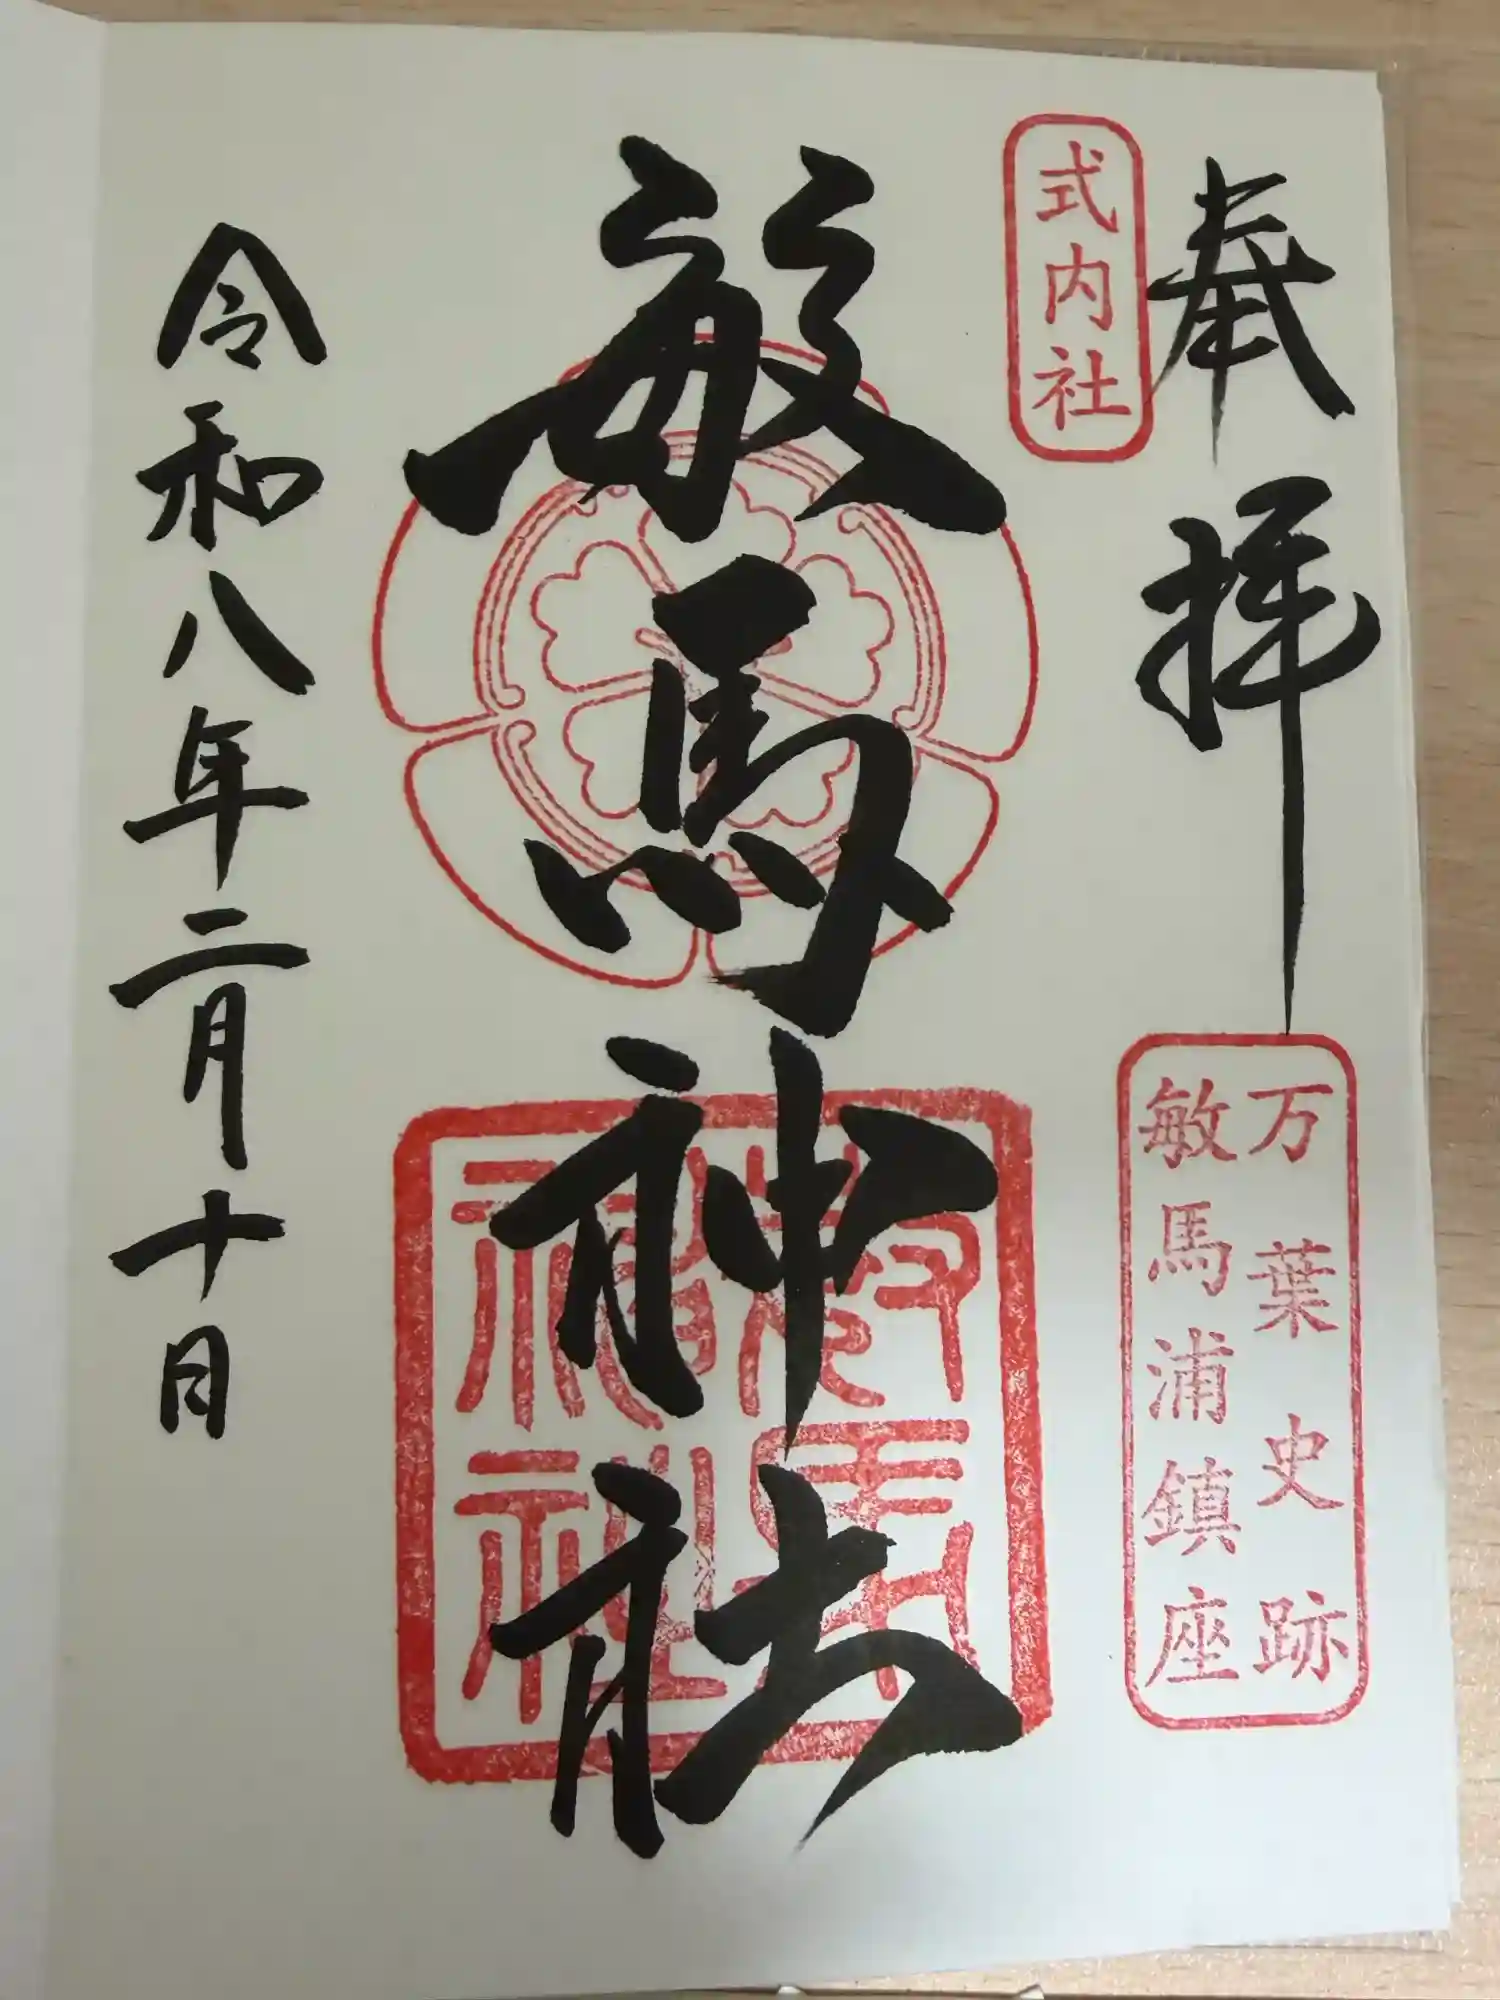 奉拝
式内社
万葉史跡
敏馬浦鎮座
敏馬神社
敏馬神社
令和八年二月十日